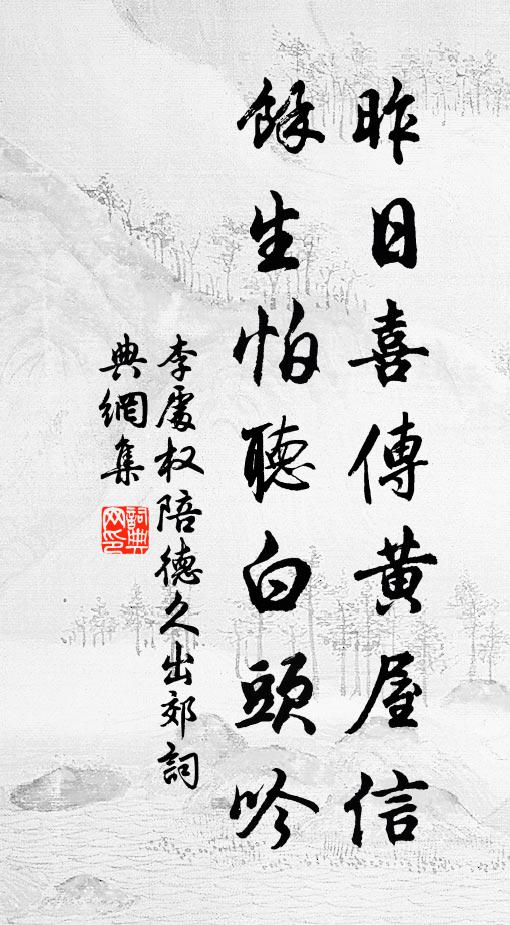 昨日喜傳黄屋信
餘生怕聽白頭吟
李處权陪德久出郊詞
典網集
詞典
网印